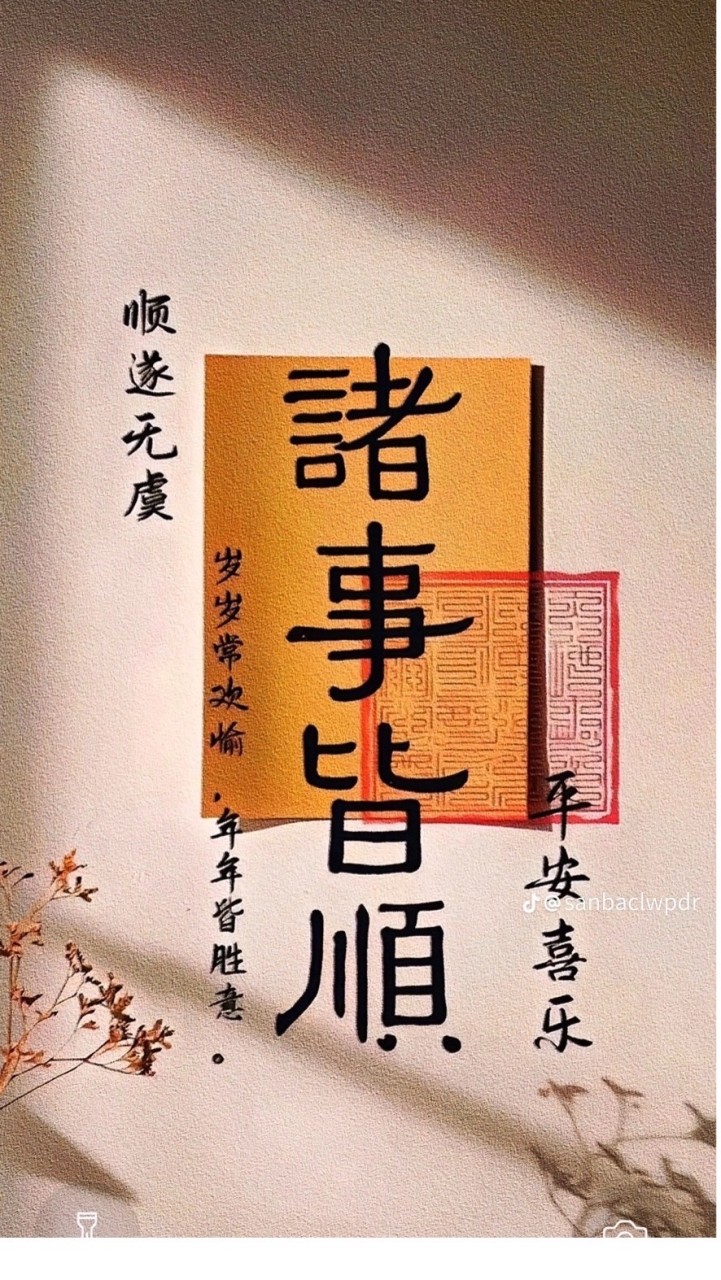 順遂无虞
岁岁常欢愉，年年皆胜意。
諸事皆順
平安喜乐
@sanbaclwpdr